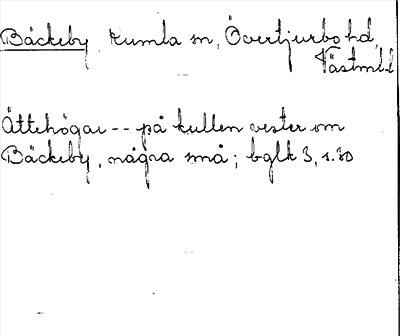 Bäckeby, Kumla sn, Övertjurbo hd,
Västmll
Ättehögar -- på kullen vester om
Bäckeby, några små; bglk 3, s. 30